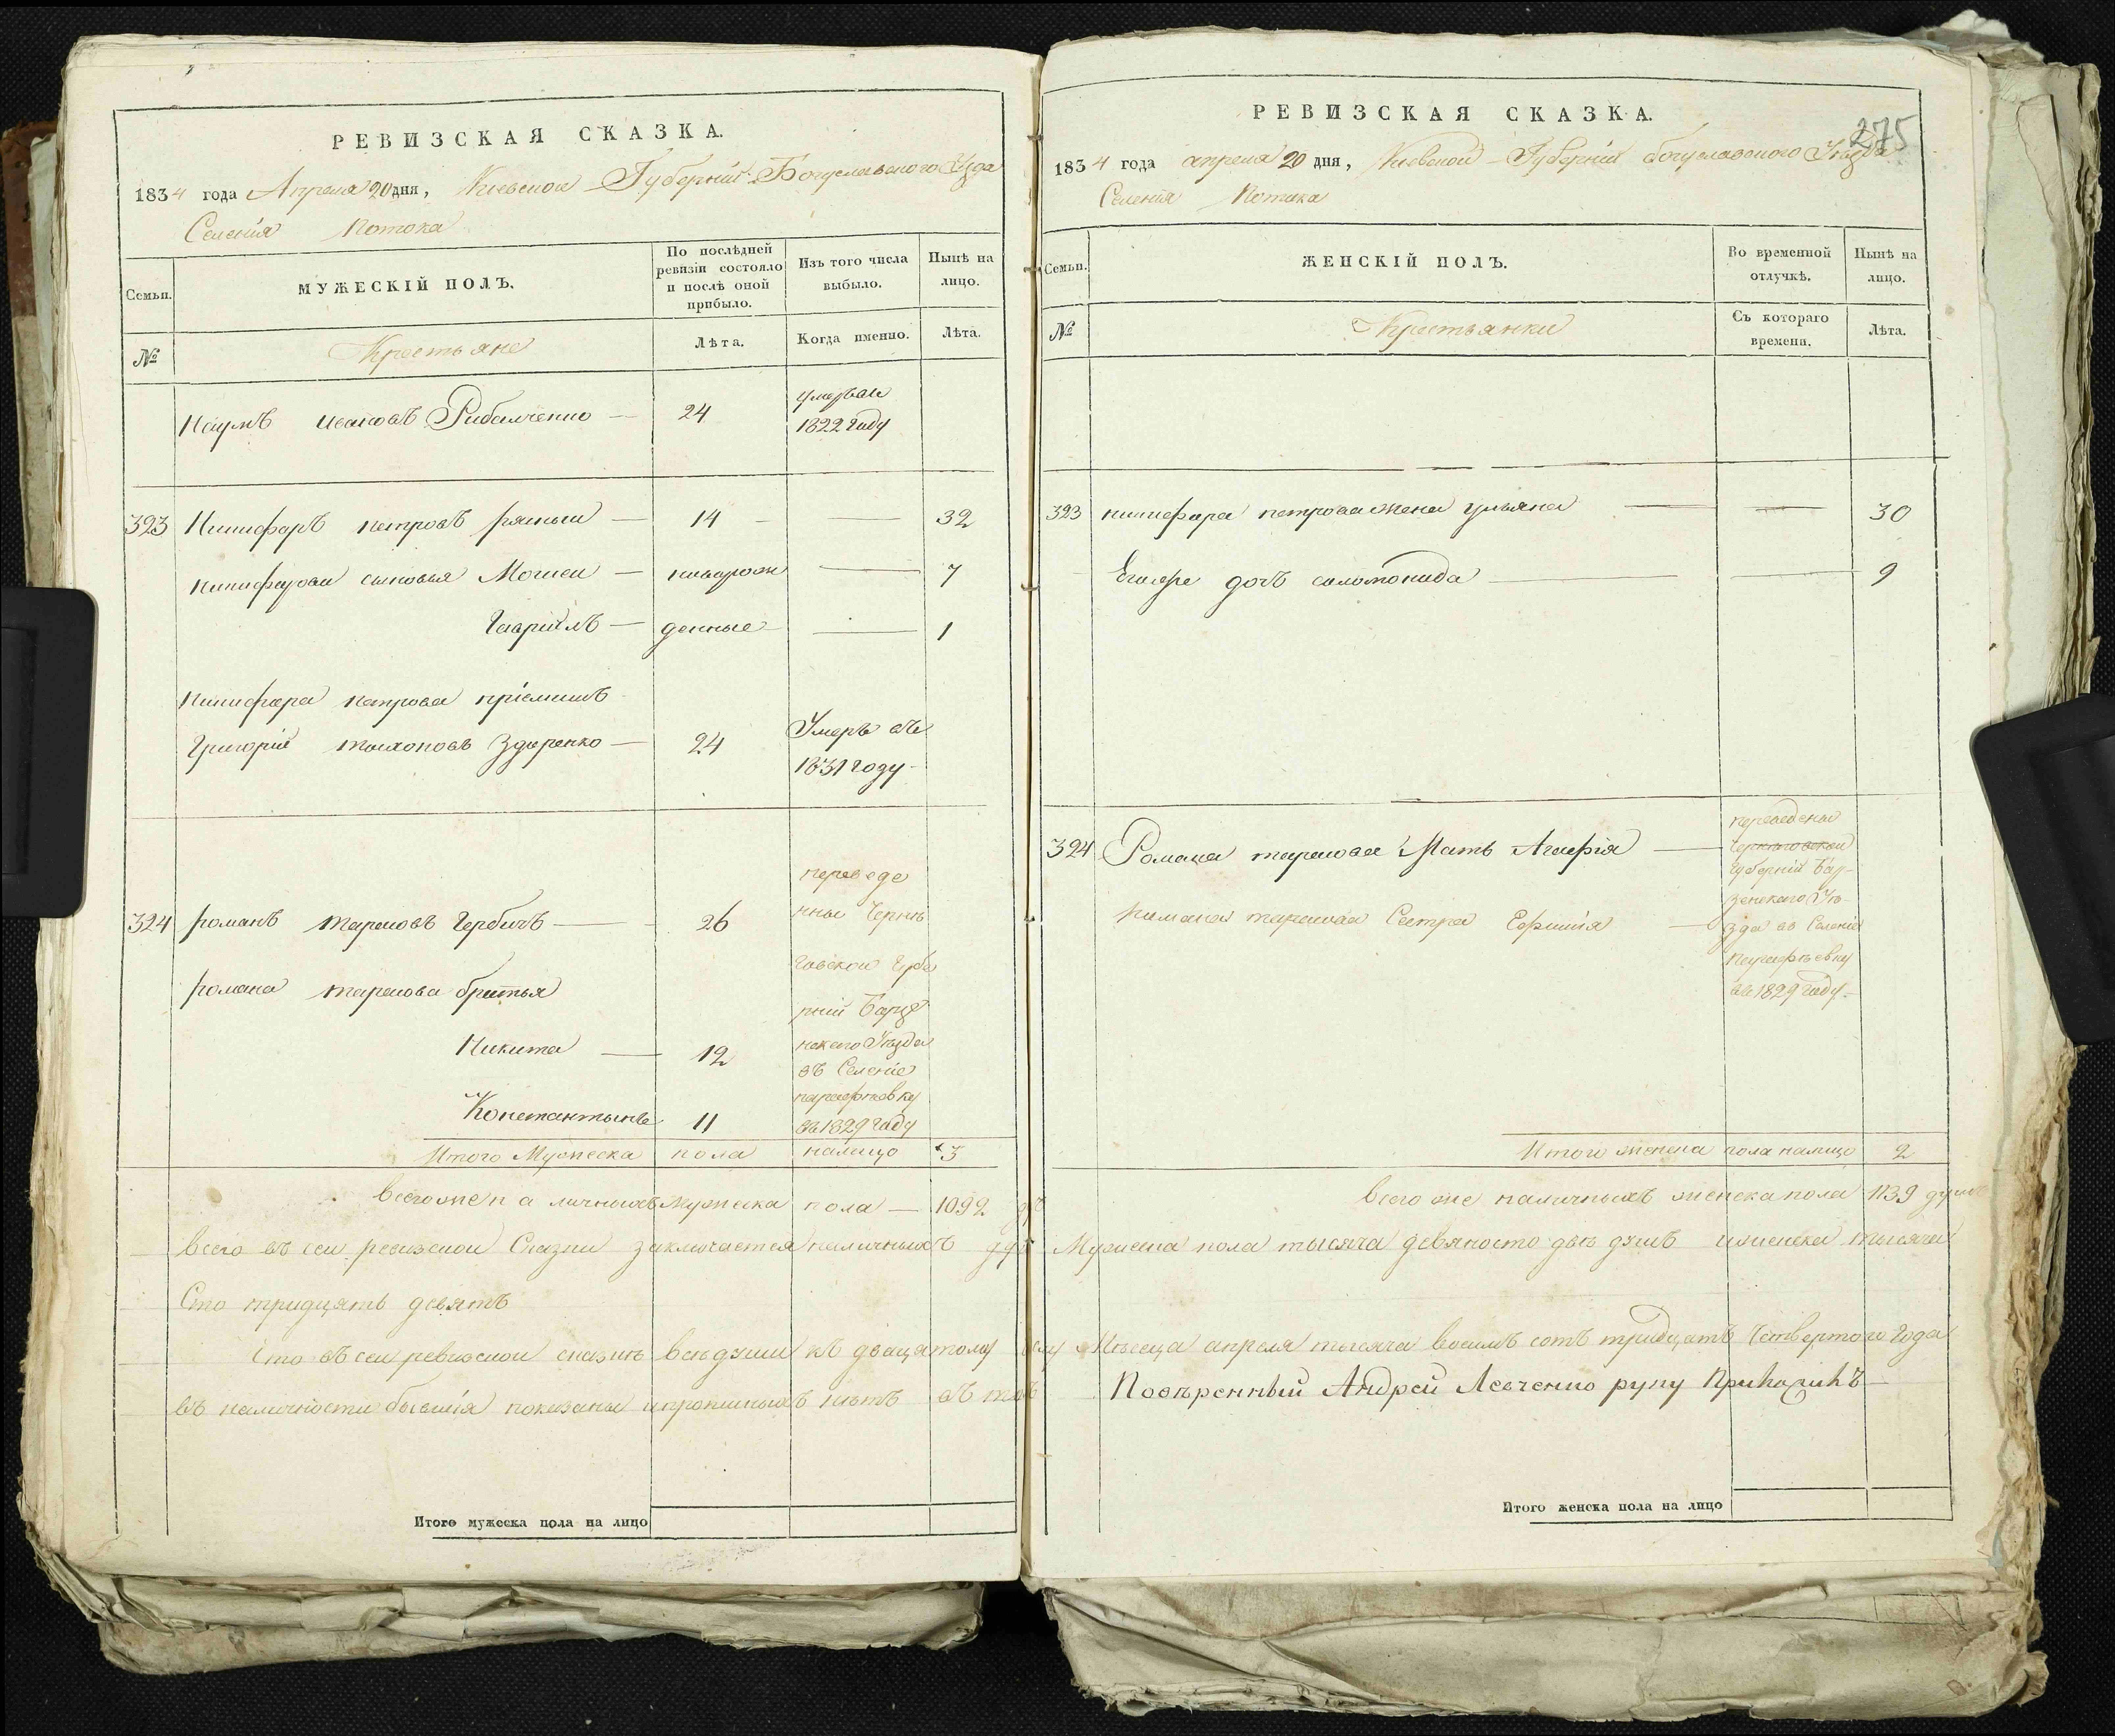 РЕВИЗСКАЯ СКАЗКА.
1834 года Апреля 20 дня, Киевской Губернїи Богуславского Уезда
Селенїя Потока
Семьи.
МУЖЕСКІЙ ПОЛЪ.
По послѣдней ревизіи состояло и послѣ оной прибыло.
Изъ того числа выбыло.
Нынѣ на лицо.
№
Крестьяне
Лѣта.
Когда именно.
Лѣта.
Наумъ Ивановъ Рибалченко — 24
умер въ 1822 году
323 Никифоръ Петровъ — 14 — 32
Никифорови сыновья Моисеи — новорож — 7
Гавріилъ — денные — 1
Никифора Петрова пріемишъ
Григорій Тихоновъ — 24
Умеръ въ
1831 году
324 Романъ Тарасовъ Гербичъ — 26
переведе
нные Черни
говской Губе
рнїи Борзе
нского Уезда
въ Селенїе
Парафиевку
въ 1829 году
Романа Тарасова братья
Никита — 12
Константынъ 11
Итого Мужеска пола налицо 3
Всегоже наличныхъ Мужеска пола — 1092
Всего въ сеи ревизскои Сказки заключается наличныхъ
Сто тридцять девятъ
Что въ сеи ревизскои сказки вси души къ двацатому
въ наличности бывшїя показаны и прописныхъ нѣтъ въ томъ
Итого мужеска пола на лицо
РЕВИЗСКАЯ СКАЗКА.
275
1834 года апреля 20 дня, Киевской Губернїи богуславского Уезда
Селенїя Потока
Семьи.
ЖЕНСКІЙ ПОЛЪ.
Во временной отлучкѣ.
Нынѣ на лицо.
№
Крестьянки
Съ котораго времени.
Лѣта.
323 Никифора Петрова жена Ульяна — 30
Егоже дочъ Соломонида — 9
324 Романа Тарасова Мать Агафїя
Романа Тарасова Сестра Ефимїя
переведены
Черниговской
Губернїи Бор-
зенского Уе-
зда въ Селенїе
Парафиевку
въ 1829 году
Итого женска пола налицо 2
Всего же наличныхъ женска пола 1139 душъ
Мужеска пола тысяча девяносто двѣ душъ и женска тысяча
Месеца апреля тысяча восимъ сотъ тридцатъ Четвертого Года
Повѣренный Андрей Левченко руку Приложилъ
Итого женска пола на лицо